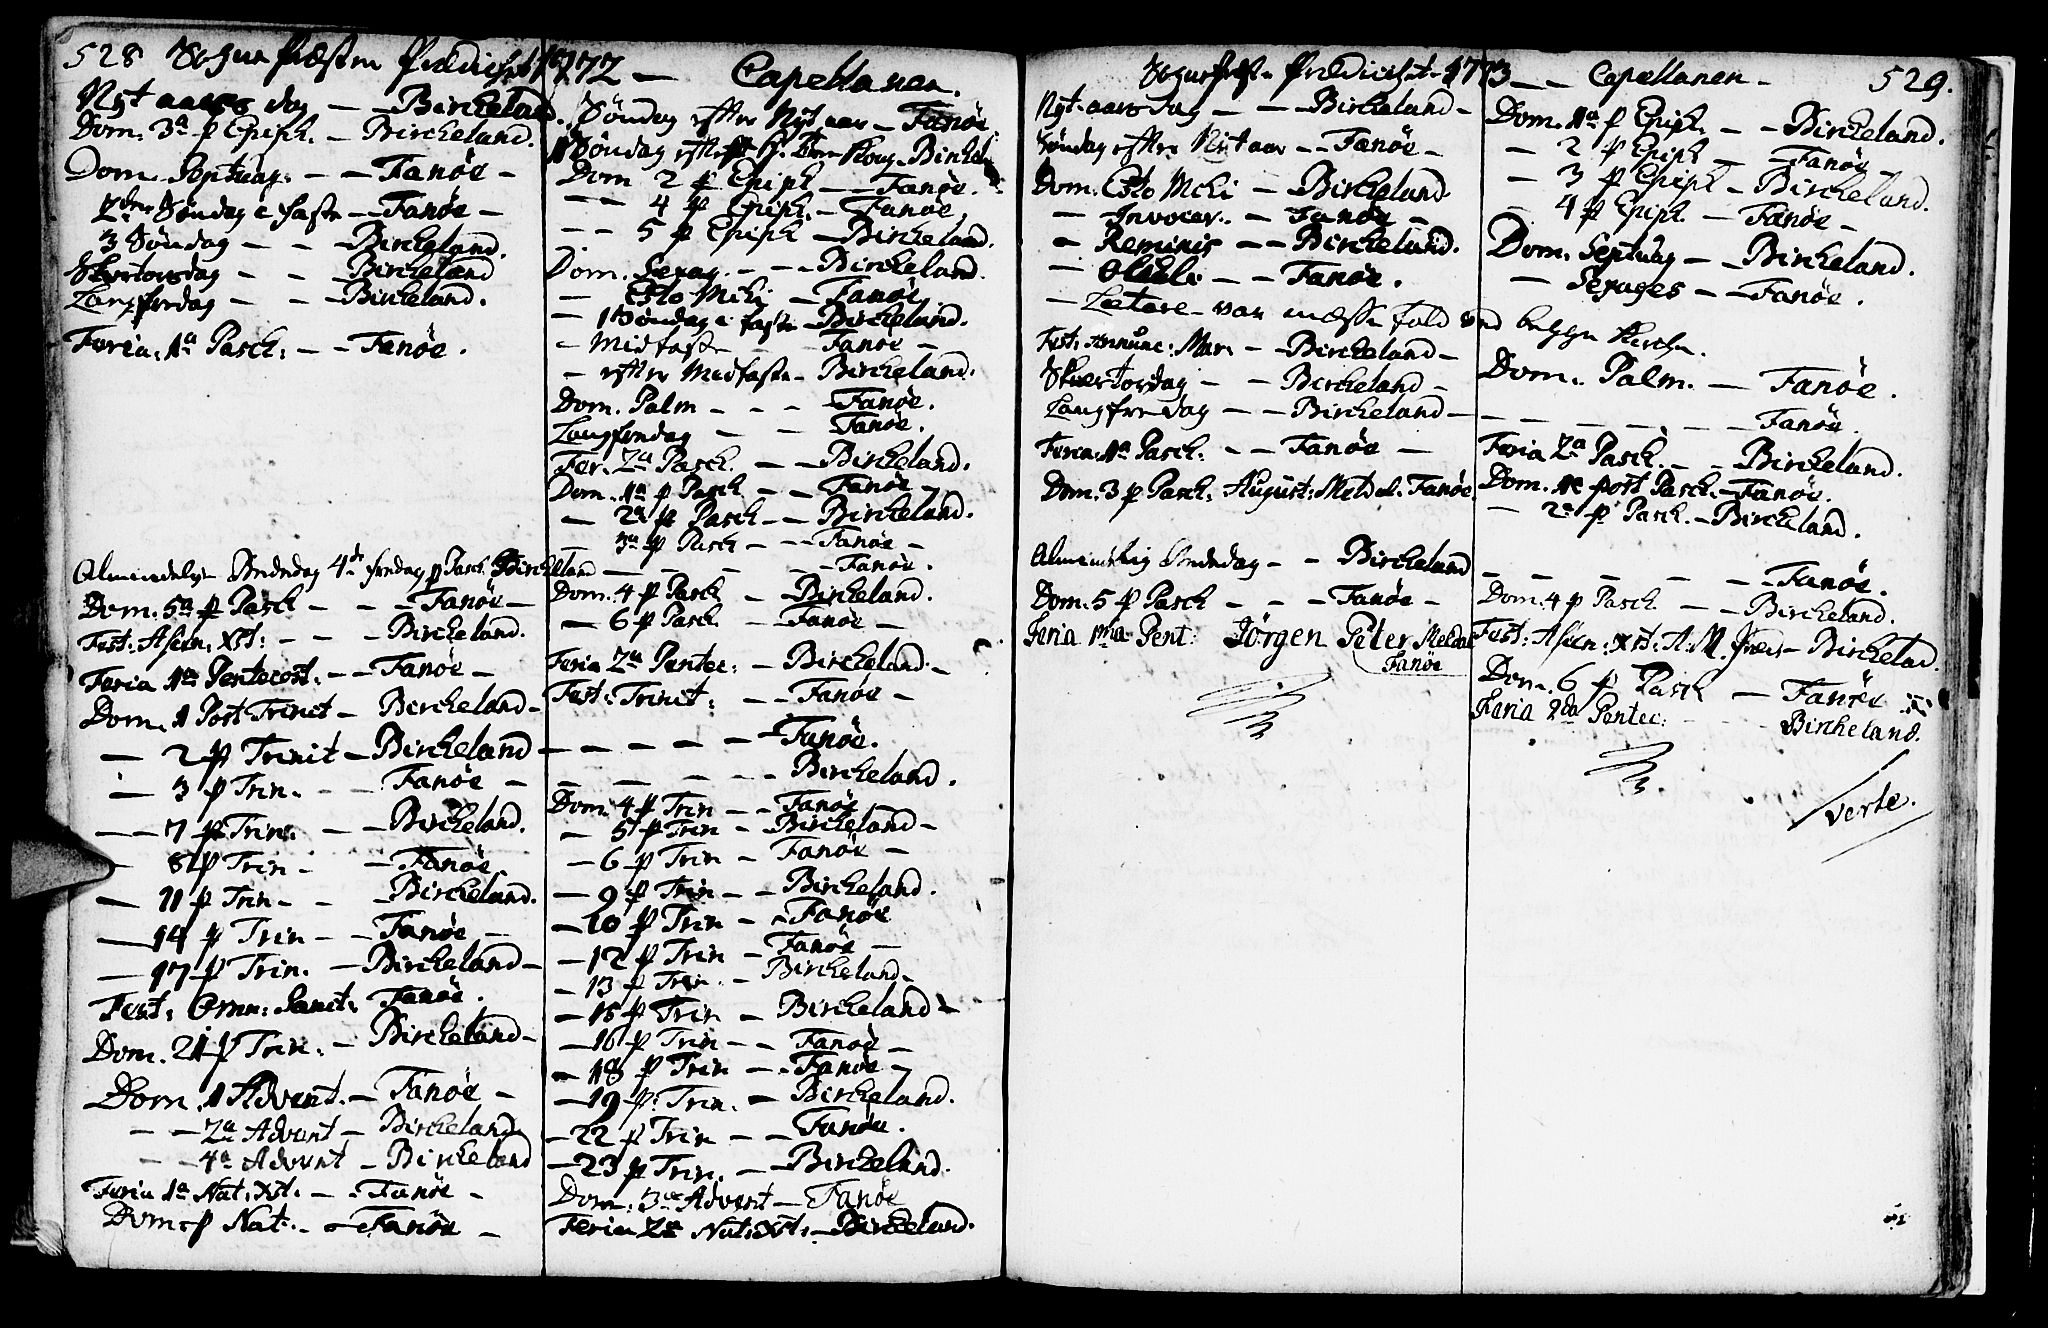 528 Sogne Præsten Prædichet 1772 —
Nyt aars dag — — Birckeland.
Dom. 3ª p Epiph. — Birckeland.
Dom. Septuag: — — Fanöe —
2den Söndag i faste — Fanöe —
3 Söndag — — Birckeland.
Skertorsdag — — Birckeland
Langfredag — — Birckeland.
Feria. 1ª Pasch: — — Fanöe.
Almindelige Bededag 4de fredag p Pasch. Birckeland
Dom. 5ª p Pasch — — — Fanöe —
Fest: Ascen: Xst: — — — Birckeland.
Feria 1ª Pentecost. — — Fanöe —
Dom. 1 Post Trinit — Berckeland —
— 2 p Trinit — Birckeland
— 3 p Trin. — — Fanöe —
— — 7 p Trin. — — Birckeland.
— 8 p Trin — — Fanöe
— 11 p Trin — — Birckeland.
— 14 p Trin — — Fanöe —
— 17 p Trin. — Birckeland —
Fest. Omn: Sanct: Fanöe.
Dom. 21 p Trin. — Birckeland —
Dom. 1 Advent. — Fanöe —
— — 2ª Advent — Birckeland
— — 4ª Advent — Birckeland
Feria 1ª Nat: Xst. — — Fanöe —
Dom p Nat. — Fanöe —
Capellanen.
Söndag efter Nyt aar — Fanöe
Dom 2 p Epiph — — Fanöe.
— — 4 p Epiph. — Fanöe
— — 5 p Epiph — Birckeland.
Dom. Sexag. — — — Birckeland.
— Esto Mihi — Fanöe
— 1 Söndag i faste — Birckeland.
— Midfaste — Fanöe —
— efter Midfaste — Birckeland.
Dom. Palm — — — Fanöe.
Langfredag — — Fanöe.
Fer. 2ª Pasch. — — Birckeland.
Dom. 1ª p Pasch — — Fanöe —
— 2ª p Pasch — — Birckeland.
— 3ª p Pasch — — Fanöe —
— — — — — Fanöe.
Dom. 4 p Pasch — Birckeland.
— 6 p Pasch — Fanöe —
Feria 2ª Pentec: — Birckeland —
Fest: Trinit: — — Fanöe —
— — — — — Fanöe.
— — — — — Birckeland.
Dom. 4 p Trin — — Fanöe
— 5 p Trin — Birckeland —
— 6 p Trin — Fanöe —
— 9 p Trin — — Birckeland.
— 10 p Trin — — Fanöe
— 12 p Trin — Fanöe —
— 13 p Trin. — Birckeland —
— 15 p Trin — Birckeland —
— 16 p Trin — — Fanöe —
— 18 p Trin — — Fanöe —
— 19 p. Trin. — Birckeland.
— 22 p Trin — — Fanöe.
— 23 p Trin. — Birckeland.
Dom: 3ª Advent — Fanöe
Feria 2ª Nat: Xst: — Birckeland.
Sognepræsten Prædichet 1773 — —
Nyt-aars dag — — Birckeland —
Söndag efter Nyt aar — — Fanöe —
Dom. Esto Mihi — Birckeland
— Invocav. — Fanöe —
— Reminis — — Birckeland.
— Oculi — — Fanöe.
— Lætare — var messe fald ved begge Kircher.
Fest: Annunc: Mar. — Birckeland —
Skertorsdag — — Birckeland —
Langfredag — — Birckeland —
Feria. 1ª Pasch: — — Fanöe —
Dom. 3 p Pasch: August: Meldal. Fanöe.
Almindelig Bededag — — Birckeland
Dom. 5 p Pasch — — — Fanöe —
Feria 1ma Pent: Jörgen Peter Meldal
Fanöe
Capellanen — 529.
Dom. 1ª p Epiph. — — Birckeland.
— 2 p Epiph — — Fanöe —
— 3 p Epiph — Birckeland.
— 4 p Epiph — Fanöe —
Dom. Septuag — — Birckeland.
— Sexages — — Fanöe.
Dom. Palm. — Fanöe.
— — — — — Fanöe.
Feria 2ª Pasch. — — Birckeland.
Dom. 1ª post Pasch. — Fanöe.
— 2ª p Pasch. — Birckeland.
— — — — — Fanöe.
Dom. 4 p Pasch — — Birckeland.
Fest: Ascen: Xst: A: M. — Birckelad.
Dom. 6 p Pasch — Fanöe
Feria 2da Pentec: — Birckeland.
Verte.